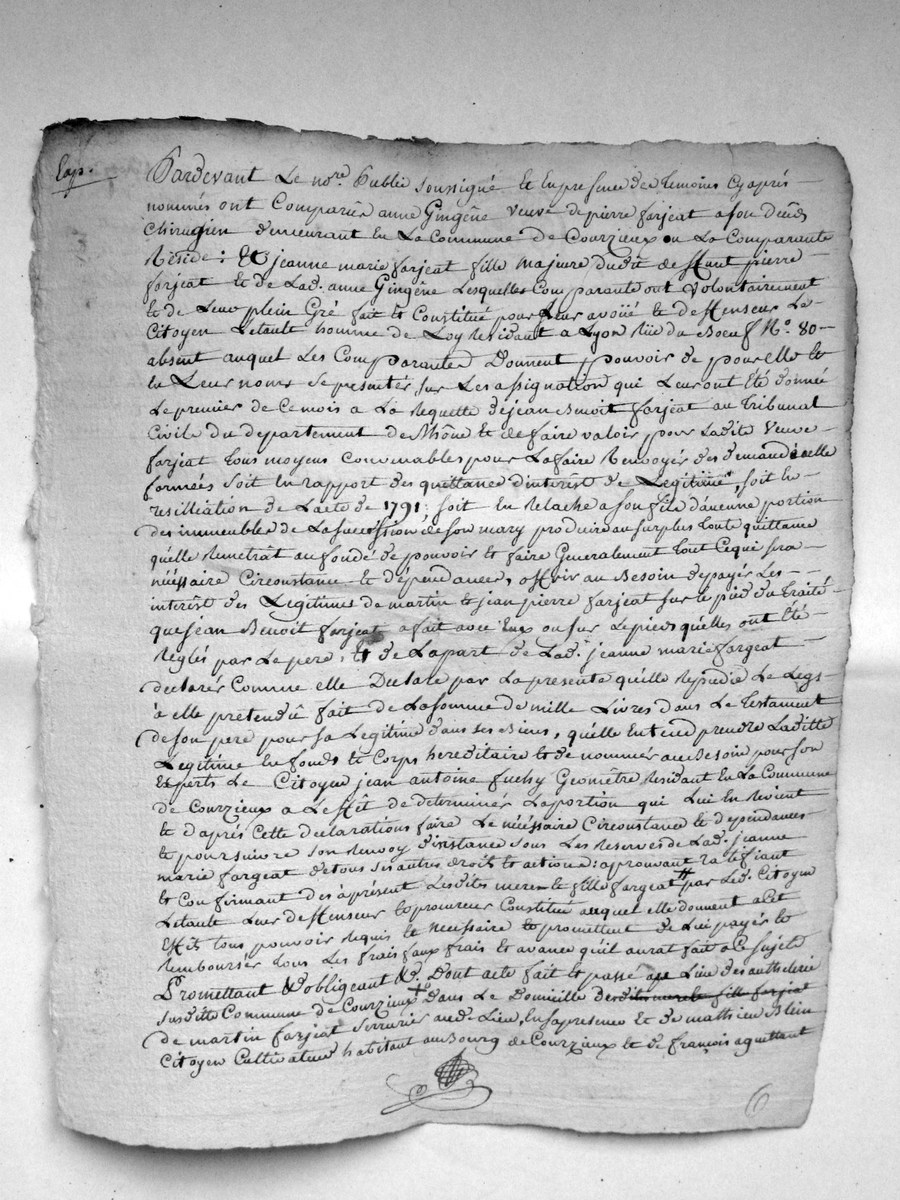 Exp.
Pardevant Le no.re Public soussigné Et En presence des Temoins Cy après
nommés ont Comparûes anne Gingêne veuve de pierre farjeat a son deceds
Chirugien demeurant En La Commune de Courzieux ou La Comparante
Réside : Et jeanne marie farjeat fille majeure dudit deffunt pierre
farjeat Et de Lad. anne Gingêne Lesquelles Comparante ont volontairement
Et de Leur plein Gré fait Et Constitué pour Leur avoüé Et deffenseur Le
Citoyen Letaule homme de Loy Residant a Lyon Rüe du Boeuf No. 80
absent auquel Les Comparante Donnent pouvoir de pour elle Et
En Leur noms se presentér sur Les assignation qui Leur ont Eté donnée
Le premier de Ce mois a La Requette de jean Benoit farjeat au Tribunal
Civile du departement de Rhône Et de faire valoir pour Ladite veuve
farjeat tous moyens Convenables pour La faire Renvoyér des demande a elle
formées soit En rapport des quittance d'interest de Legitime, soit En
resilliation de L'acte de 1791 ; soit En Relache a son fils d'aucune portion
des immeubles de La succession de son mary produire au surplus toute quittance
quelle Remetrat au fondé de pouvoir Et faire Generalement tout Ce qui sera
nécéssaire Circonstance Et dépendances, offrir au Besoin de payér Les
interêst des Legitimes de martin Et jean pierre farjeat sur Le pied du traité
que jean Benoit farjeat a fait avec Eux ou sur Le pied quelles ont Eté
Réglés par Le pere, Et de La part de Lad. jeanne marie fargeat
declarér Comme elle Declare par La presente quelle Repudie Le Legs
a elle pretendû fait de La somme de mille Livres dans Le Testament
de son pere pour sa Legitime dans ses Biens, quelle Entend prendre Laditte
Legitime En fonds Et Corps hereditaire Et de nommér au Besoin pour son
Experts Le Citoyen jean antoine fuchy Geomêtre Residant En La Commune
de Courzieux a L'effêt de determinér La portion qui Lui En Revient
Et d'après Cette declarations faire Le nécéssaire Circonstance Et dependances
Et poursuivre son Renvoy d'instance sous Les Reserves de Lad. jeanne
marie fargeat de tous ses autres droits Et actions : aprouvant ratiffiant
Et Confirmant des àprésent Lesdites mere Et fille fargeat par Led. Citoyen
Letaule Leur deffenseur Et procureur Constitué auquel elle donnent a Cet
Effet tous pouvoir Requis Et necessaire Et promettent de Lui payér Et
Remboursér tous Les frais faux frais Et avance quil aurat fait a Ce sujet
Promettant Et obligeant &. Dont acte fait Et passé au Lieu des
susditte Commune de Courzieux dans Le Domicille desdits mere Et fille farjeat
de martin farjeat serrurier aud. Lieu, En la presence Et de mathieu Blein
Citoyen Cultivateur habitant au Bourg de Courzieux Et de françois aguettant
6